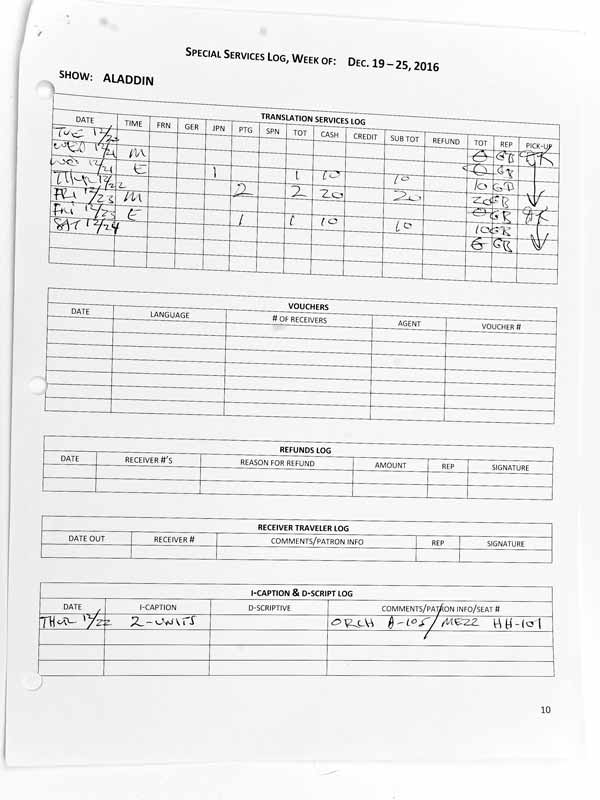 SPECIAL SERVICES LOG, WEEK OF: DEC. 19 – 25, 2016
SHOW: ALADDIN
TRANSLATION SERVICES LOG
DATE TIME FRN GER JPN PTG SPN TOT CASH CREDIT SUB TOT REFUND TOT REP PICK-UP
TUE 12/20 0 GB
WED 12/21 M 0 GB
WED 12/21 E 1 1 10 10 10 GB
THUR 12/22 2 2 20 20 20 GB
FRI 12/23 M 0 GB
FRI 12/23 E 1 1 10 10 10 GB
SAT 12/24 0 GB
VOUCHERS
DATE LANGUAGE # OF RECEIVERS AGENT VOUCHER #
REFUNDS LOG
DATE RECEIVER #'S REASON FOR REFUND AMOUNT REP SIGNATURE
RECEIVER TRAVELER LOG
DATE OUT RECEIVER # COMMENTS/PATRON INFO REP SIGNATURE
I-CAPTION & D-SCRIPT LOG
DATE I-CAPTION D-SCRIPTIVE COMMENTS/PATRON INFO/SEAT #
THUR 12/22 2-UNITS ORCH A-105/MEZZ HH-101
10